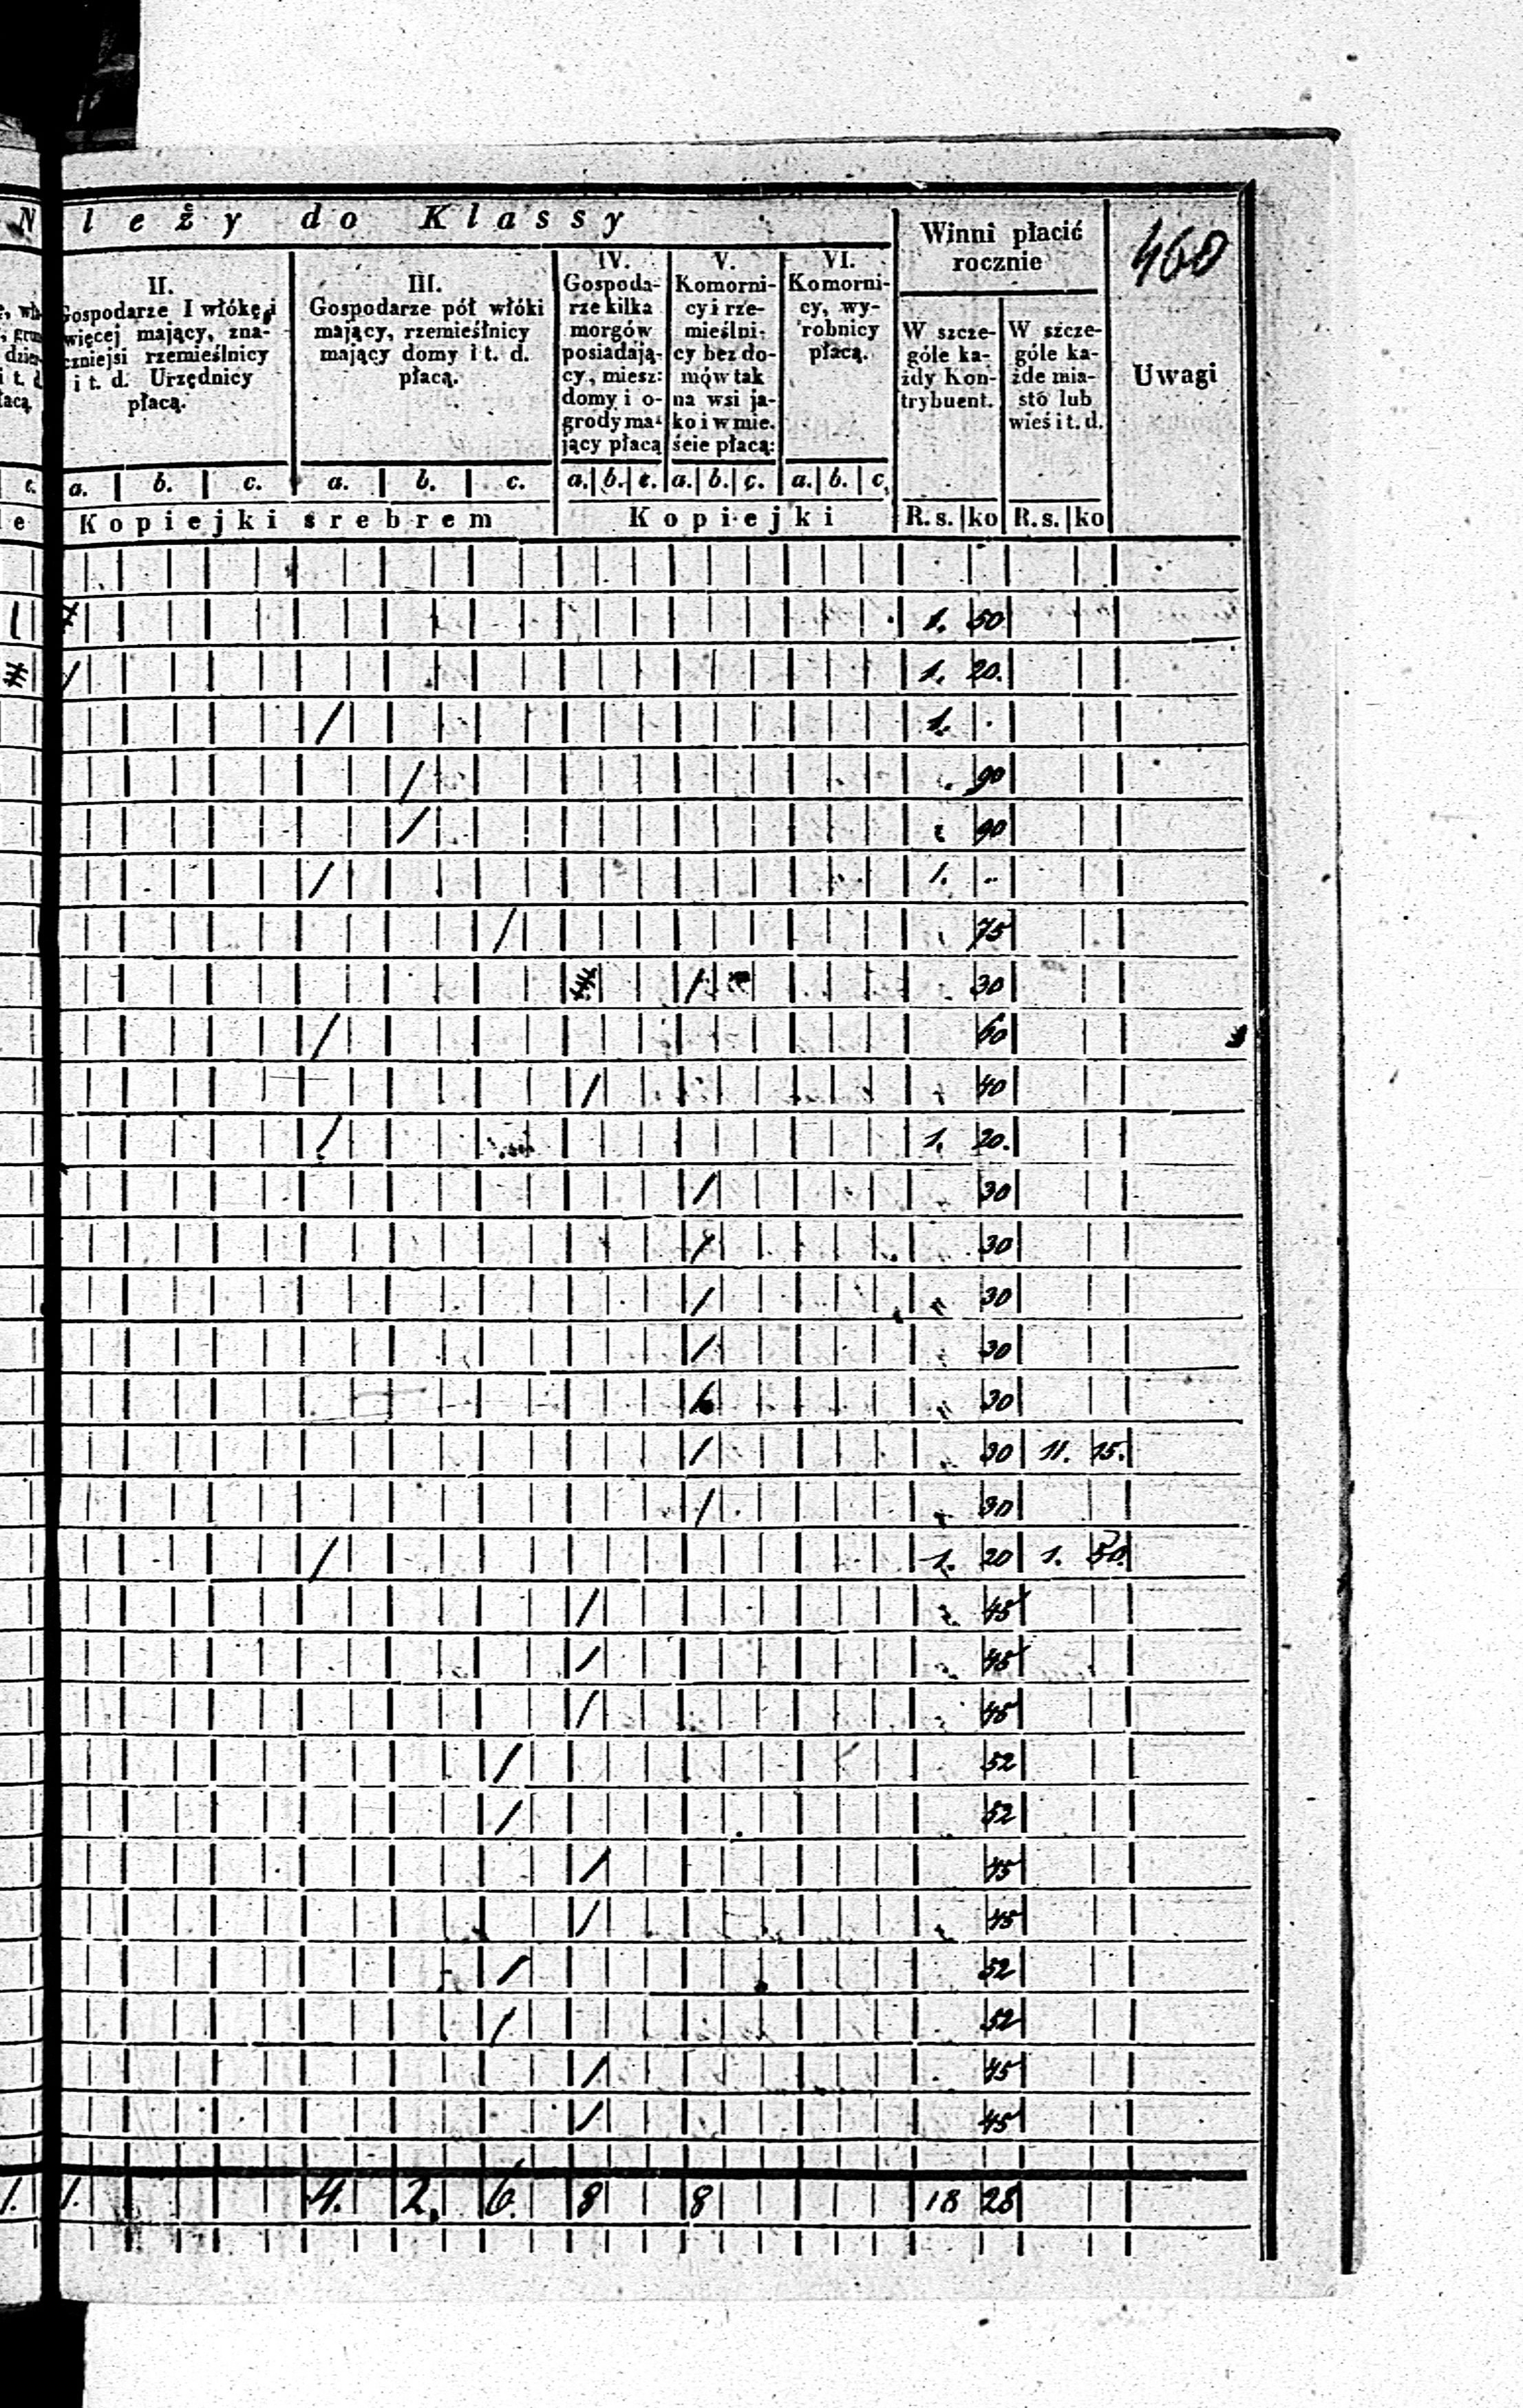 N leży do Klassy
Winni płacić
rocznie
460
II.
Gospodarze I włókę i
więcej mający, zna-
czniejsi rzemieślnicy
i t. d. Urzędnicy
płacą.
III.
Gospodarze pół włóki
mający, rzemieślnicy
mający domy i t. d.
płacą.
IV.
Gospoda-
rze kilka
morgów
posiadają-
cy, miesz:
domy i o-
grody ma-
jący płacą
V.
Komorni-
cy i rze-
mieślni-
cy bez do-
mów tak
na wsi ja-
ko i w mie-
ście płacą:
VI.
Komorni-
cy, wy-
robnicy
płacą.
W szcze-
góle ka-
żdy Kon-
trybuent.
W szcze-
góle ka-
żde mia-
sto lub
wieś i t. d.
Uwagi
c. a. b. c. a. b. c. a. b. c. a. b. c. a. b. c.
e Kopiejki srebrem Kopiejki R. s. ko R. s. ko
/ 1. 50
/ 1. 20.
/ 1. .
/ 90
/ 90
/ 1. ..
/ 75
/ 30
/ 60
/ 40
/ 1. 20.
/ 30
/ 30
/ 30
/ 30
/ 30
/ 30 11. 15.
/ 30
/ 1. 20 1. 50.
/ 45
/ 45
/ 45
/ 52
/ 52
/ 45
/ 45
/ 52
/ 52
/ 45
/ 45
1. 1. 4. 2. 6. 8 8 18 28